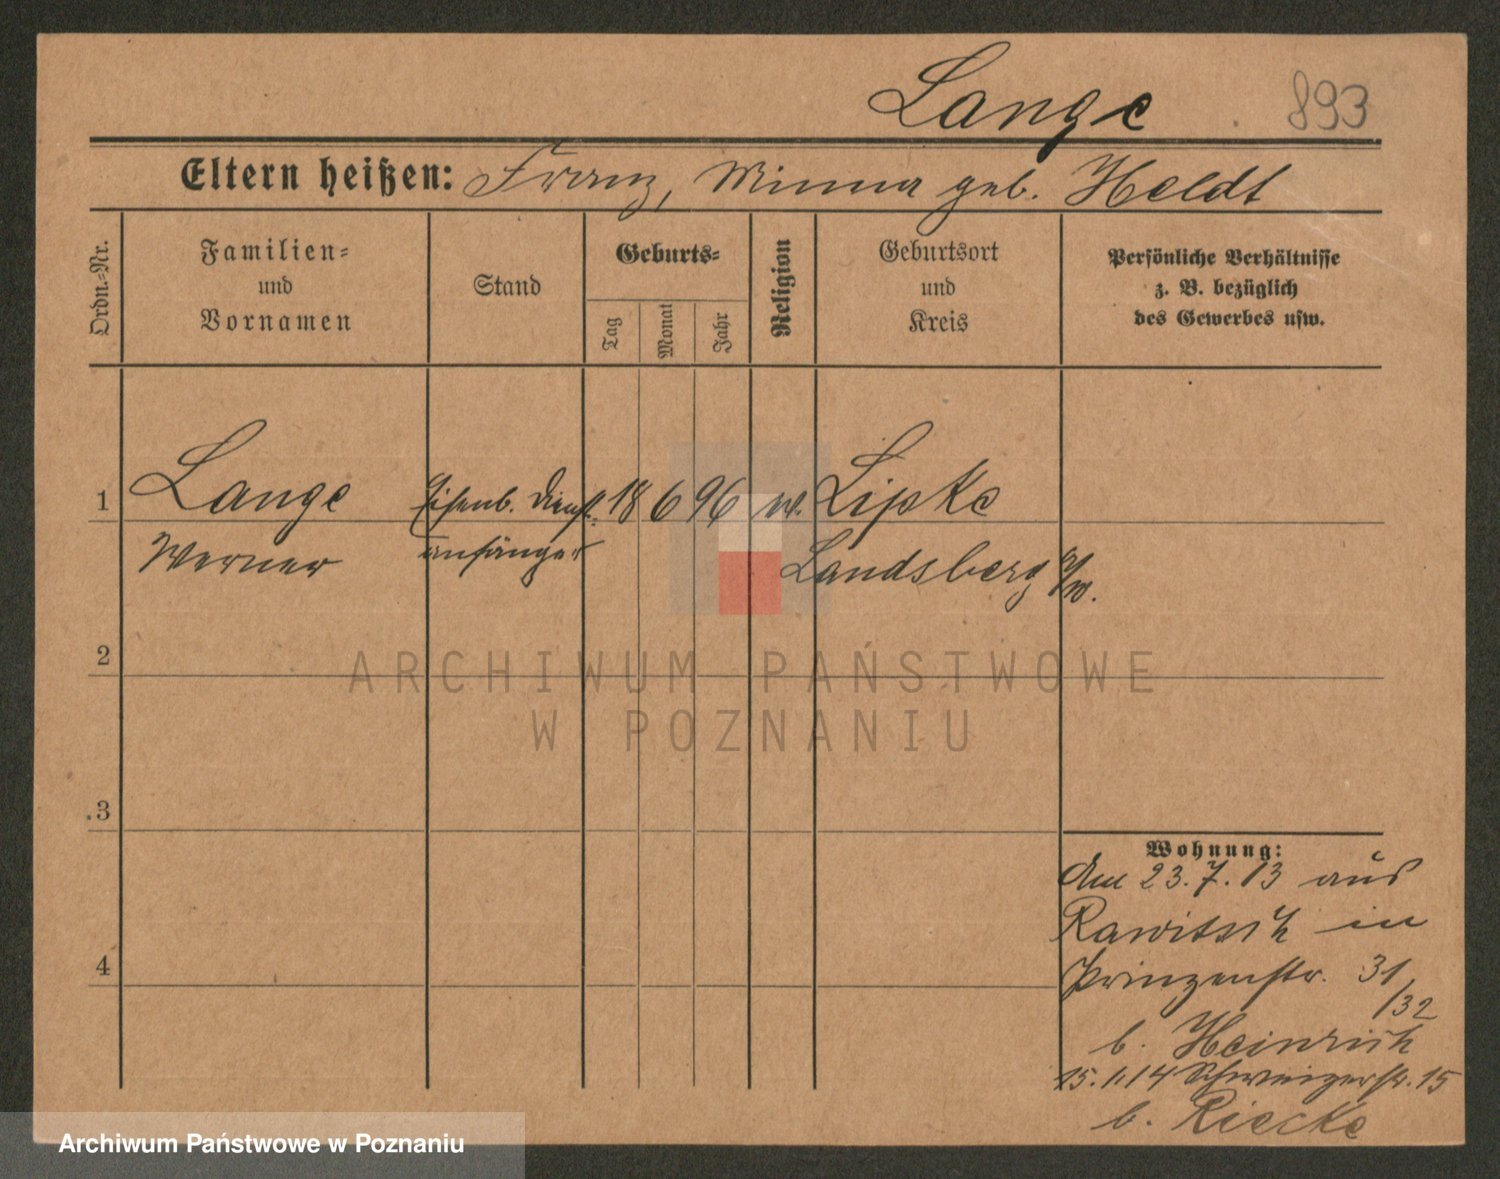 Lange 893
Eltern heißen: Franz, Minna geb. Heldt
Ordn.-Nr.
Familien-
und
Vornamen
Stand
Geburts-
Tag
Monat
Jahr
Religion
Geburtsort
und
Kreis
Persönliche Verhältnisse
z. B. bezüglich
des Gewerbes usw.
1 Lange Eisenb. Dienst- 18 6 96 ev. Lipke
Werner anfänger Landsberg a/W.
2
ARCHIWUM PAŃSTWOWE
W POZNANIU
3
4
Wohnung:
Am 23.7.13 aus
Rawitsch in
Prinzenstr. 31
/32
b. Heinrich
15.1.14 Schweizerstr. 15
b. Riecke
Archiwum Państwowe w Poznaniu